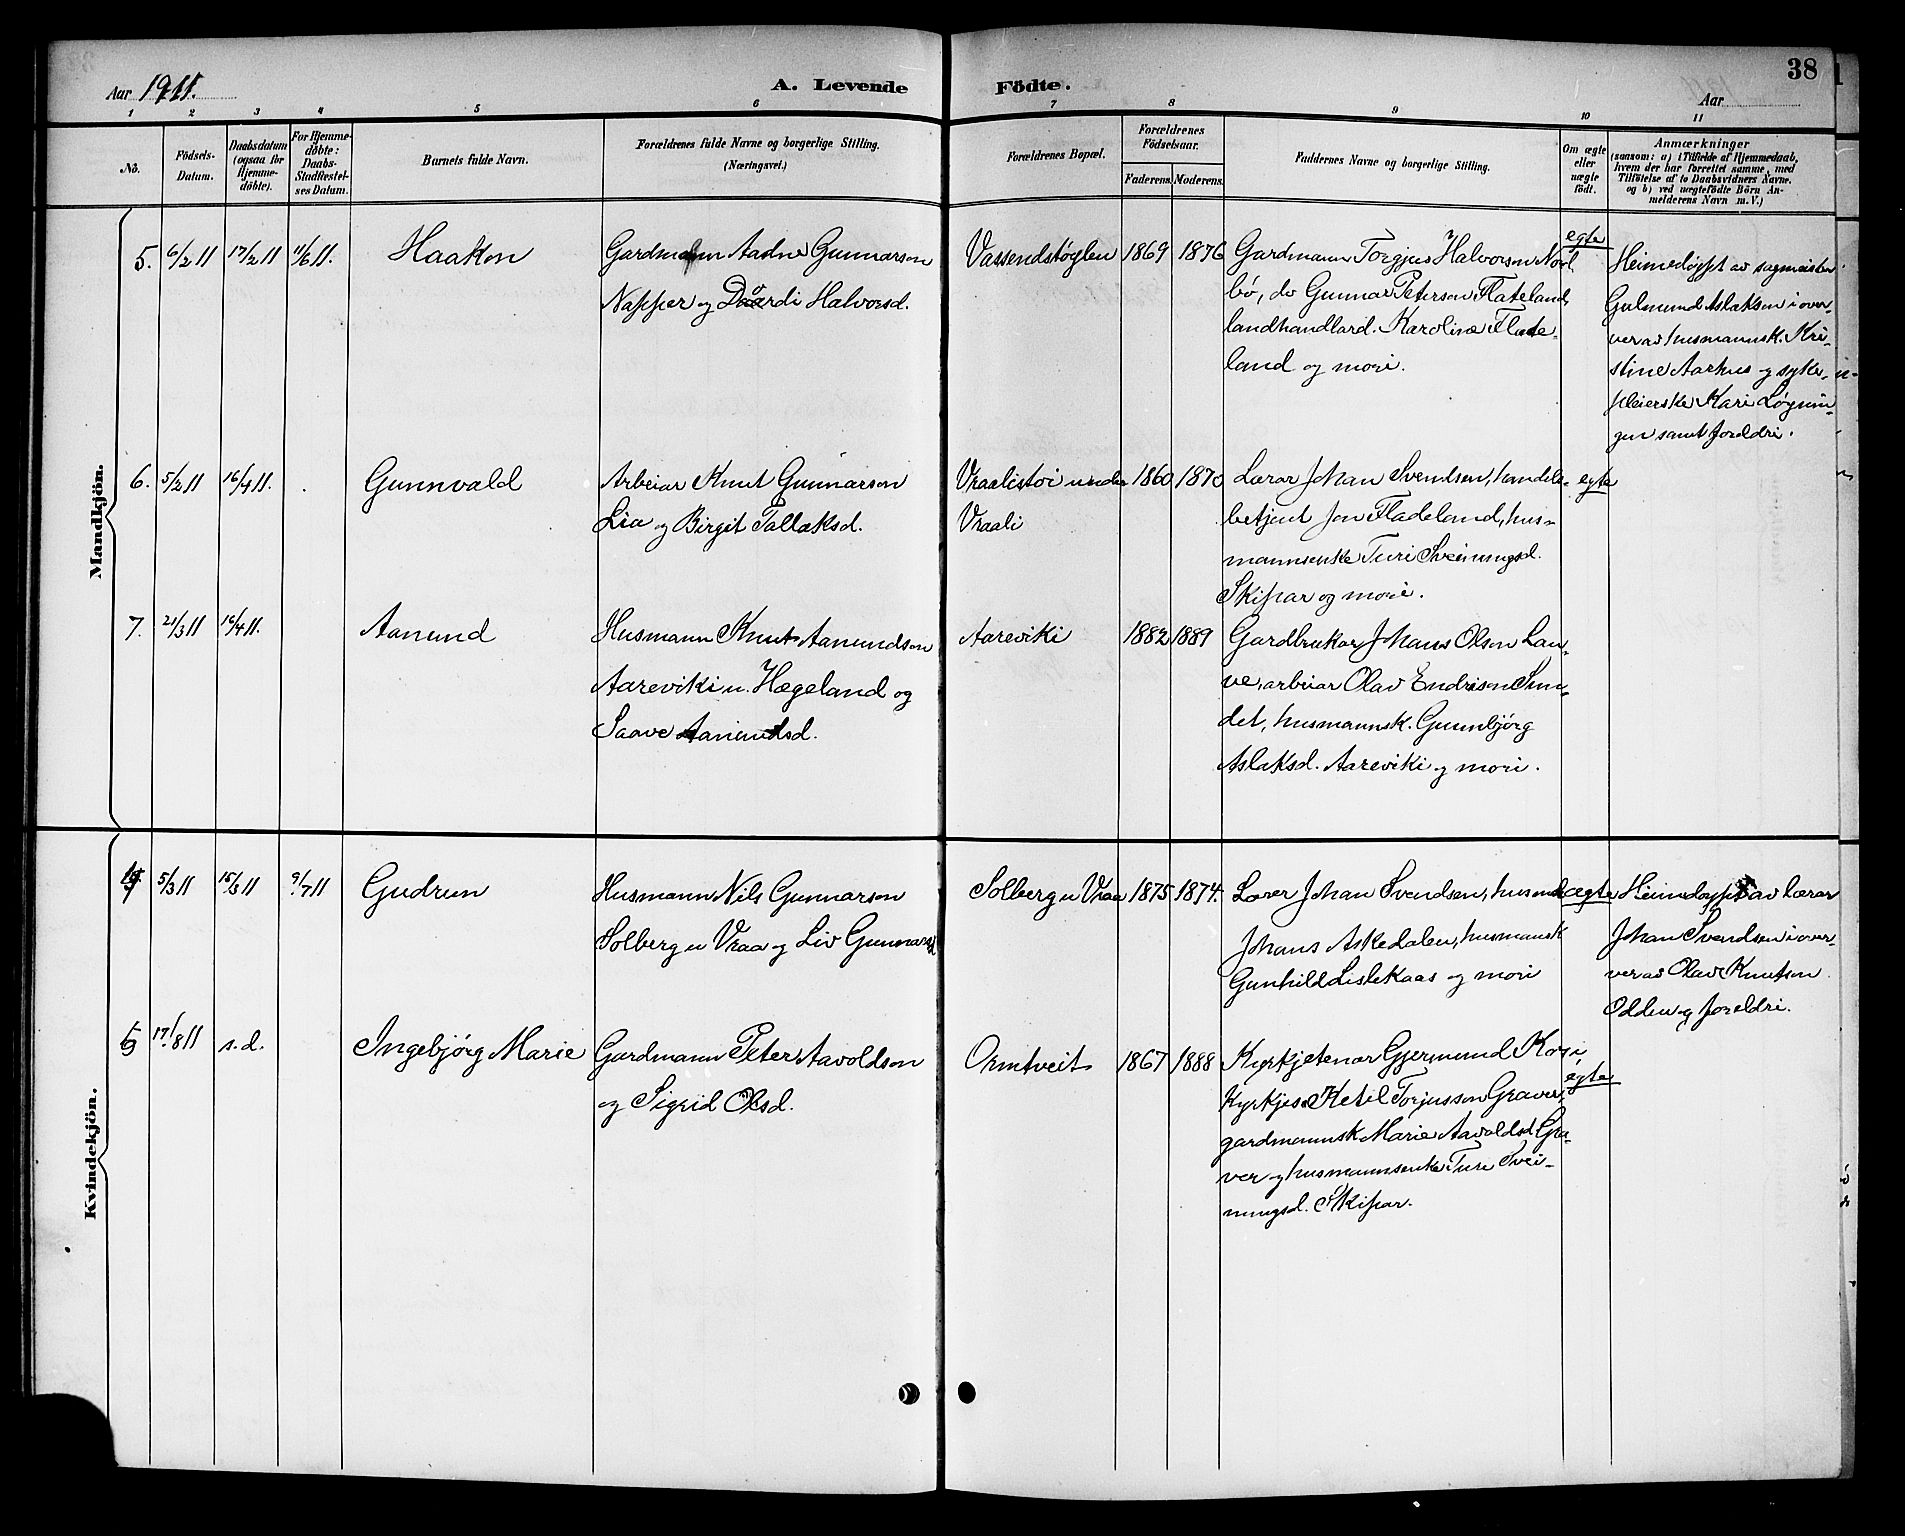 38
Aar 1911.
A. Levende Födte.
Aar
1 2 3 4 5 6 7 8 9 10 11
No.
Födsels-
Datum.
Daabsdatum
(ogsaa for
Hjemme-
döbte).
For Hjemme-
döbte:
Daabs-
Stadfæstel-
ses Datum.
Barnets fulde Navn.
Forældrenes fulde Navne og borgerlige Stilling.
(Næringsvei.)
Forældrenes Bopæl.
Forældrenes
Födselsaar.
Faderens. Moderens.
Faddernes Navne og borgerlige Stilling.
Om ægte
eller
uægte
födt.
Anmærkninger
(saasom: a) i Tilfælde af Hjemmedaab,
hvem der har forrettet samme, med
Tilföielse af to Daabsvidners Navne,
og b) ved uægtefödte Börn An-
melderens Navn m. V.)
Mandkjön.
5. 6/2 11 17/2 11 11/6 11.
Haakon
Gardmann Aadne Gunnarson
Napper og Daardi Halvorsd.
Vassendstøglen 1869 1876
Gardmann Torgjus Halvorson Nord
bø, do Gunnar Peterson Flateland,
landhandlard. Karoline Flate-
land og mori.
egte
Heimedøypt av sagmeister
Gulmund Aslaksen i over-
ver av husmannsk. Kri-
stine Aarhus og syke-
pleierske Kari Løgnin
gen samt foreldri.
6. 5/2 11 16/4 11.
Gunnvald
Arbeiar Knut Gunnarson
Lia og Birgit Tallaksd.
Vraalistøi under
Vraali
1860 1870
Lærar Johan Svendsen, handels-
betjent Jon Fladeland, hus-
mannsenke Turi Sveinungsd.
Skipar og mori.
egte
7. 21/3 11 16/4 11.
Aanund
Husmann Knut Aanundson
Aareviki u. Hægeland og
Saave Aanundsd.
Aareviki 1882 1889
Gardbrukar Johans Olson Lau-
ve, arbeiar Olav Endrison Sun-
det, husmannsk. Gunnbjørg
Aslaksd. Aareviki og mori.
Kvindekjön.
5/3 11 15/3 11 9/7 11
Gudrun
Husmann Nils Gunnarson
Solberg u Vraa og Liv Gunnarsd
Solberg u Vraa 1875 1874.
Lærer Johan Svendsen, husmand
Johans Askedalen, husmansk
Gunhild Lislekaas og mori
ægte
Heimedøypt av lærar
Johan Svendsen i over-
ver av Olav Knutson
Odden og foreldri.
17/8 11 s.d.
Ingebjørg Marie
Gardmann Peter Aavoldson
og Sigrid Olsd.
Ormtveit 1867 1888
Kyrkjetenar Gjermund Kosi
Kyrkjes. Ketil Torjusson Graver,
gardmannsk Marie Aavoldsd Gra-
ver og husmannsenke Turi Svei-
nungsd. Skipar.
egte